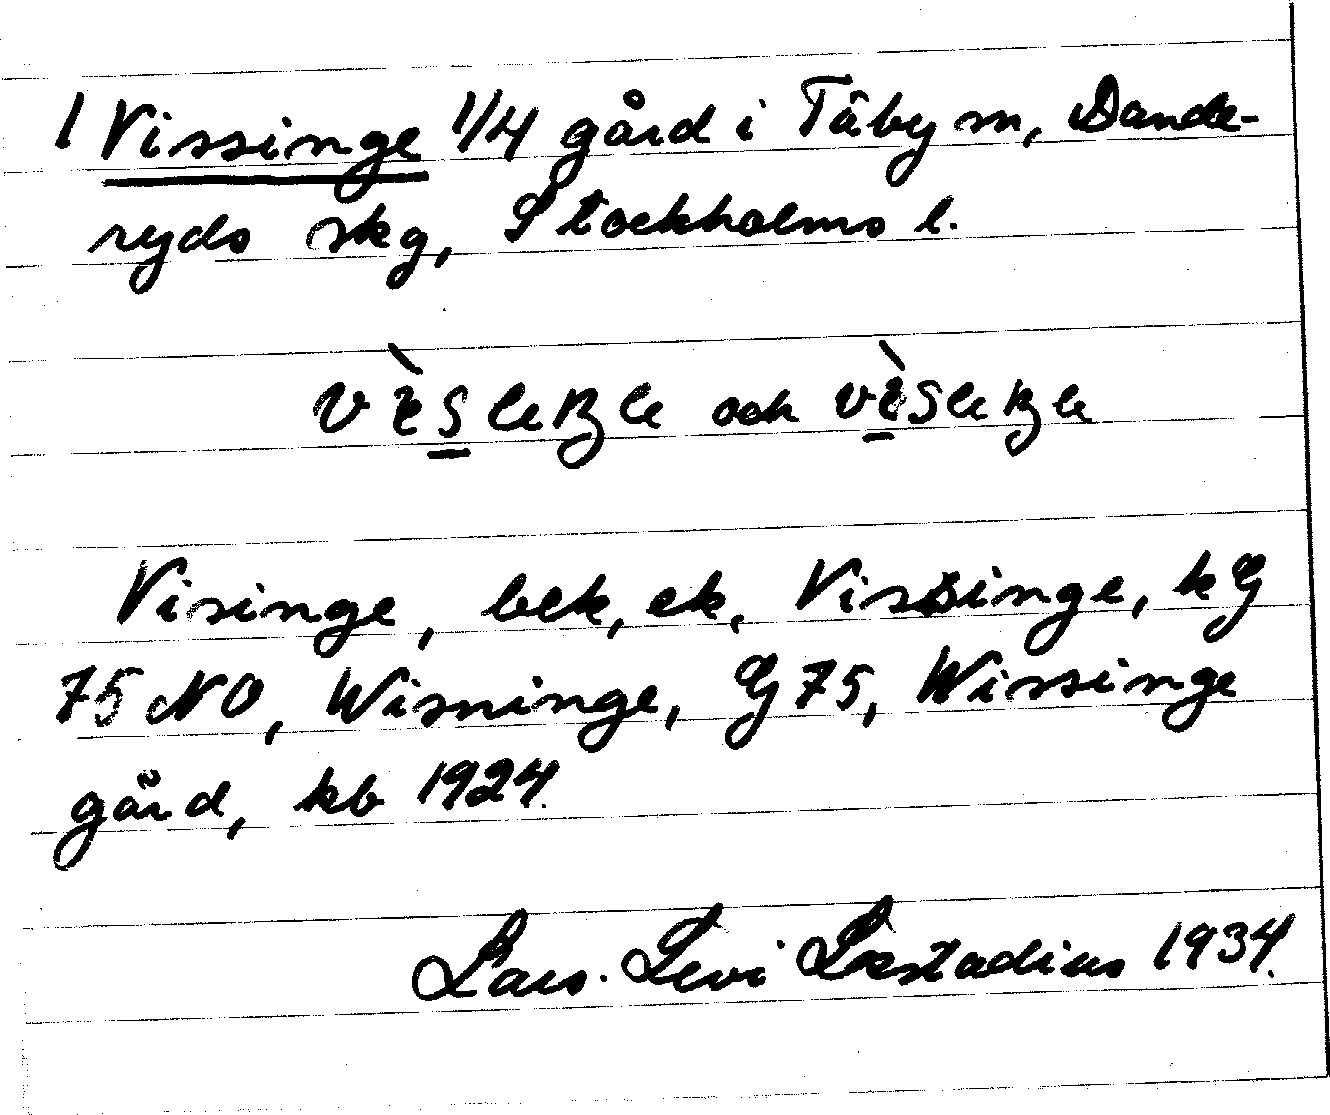 1 Vissinge 1/4 gård i Täby sn, Dande-
ryds skg, Stockholms l.
och
Visinge, bek, ek, Vissinge, kG
75 NO, Wisninge, G 75, Wissinge
gård, kb 1924.
Lars-Levi Læstadius 1934.